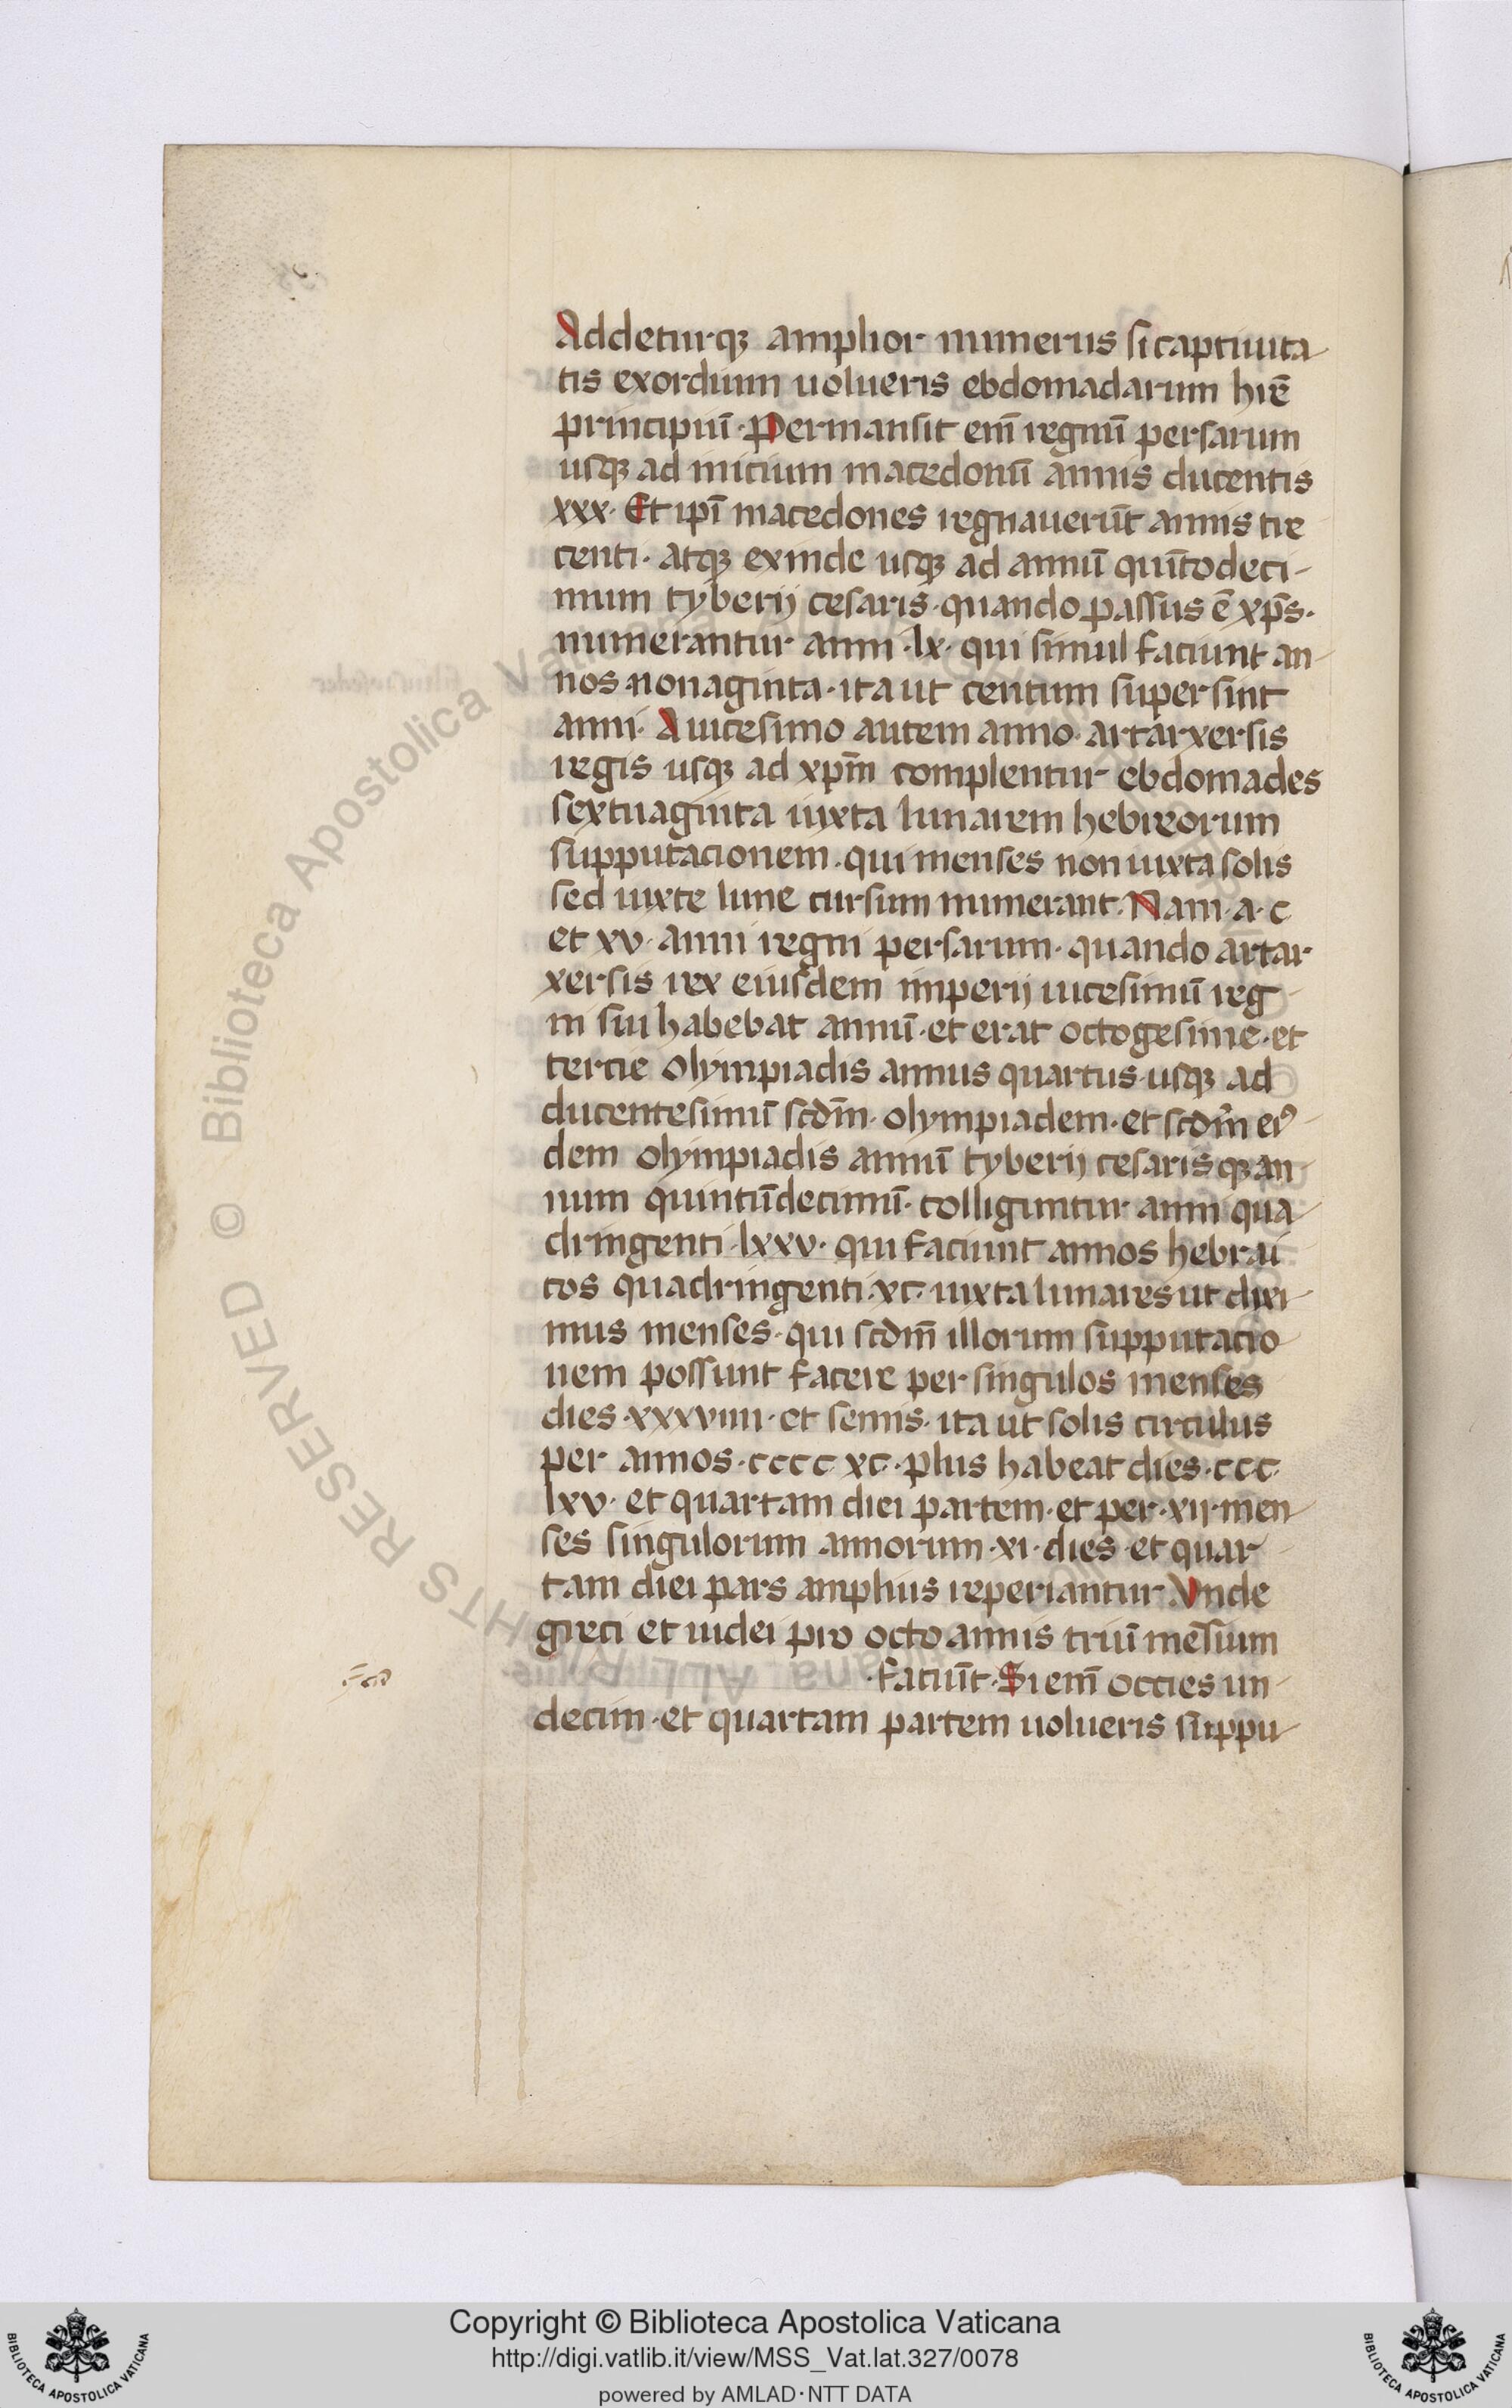 Addeturqꝫ amplior numerus si captiuita
tis exordium uolueris ebdomadarum hr̄e
principiū · Permansit em̄ regnū persarum
usqꝫ ad inicium macedonū annis ducentis
xxx · Et ip̄i macedones regnauerūt annis tre
centi · atqꝫ exinde usqꝫ ad annū quīto deci-
mum tyberij cesaris · quando passus ē xp̄s ·
numerantur anni · lx · qui simul faciunt an-
nos nonaginta · ita ut centum supersint
anni · A uicesimo autem anno · artarxersis
regis usqꝫ ad xp̄m complentur ebdomades
sextuaginta iuxta lunarem hebreorum
supputacionem · qui menses non iuxta solis
sed iuxte lune cursum numerant · Nam · a · c
et xv · anni regni persarum · quando artar
xersis rex eiusdem imperij uicesimū reg-
ni sui habebat annū · et erat octogesime · et
tercie olympiadis annus quartus · usqꝫ ad
ducentesimū scd̄m · olympiadem · et scd̄m eiꝰ-
dem olympiadis annū tyberij cesarisqꝫ an-
num quintūdecimū · colliguntur anni qua-
dringenti · lxxv · qui faciunt annos hebrai
cos quadringenti · xc · iuxta lunares ut dixi-
mus menses · qui scd̄m illorum supputacio-
nem possunt facere per singulos menses
dies · xxxviiii · et semis · ita ut solis circulus
per annos · cccc xc · plus habeat dies · ccc ·
lxv · et quartam diei partem · et per · xij · men-
ses singulorum annorum · xi · dies · et quar-
tam diei pars amplius reperiantur · Vnde
greci et iudei pro octo annis triū mēsium
· faciūt · Si em̄ occies un-
decim · et quartam partem uolueris suppu-
Copyright © Biblioteca Apostolica Vaticana
http://digi.vatlib.it/view/MSS_Vat.lat.327/0078
powered by AMLAD·NTT DATA